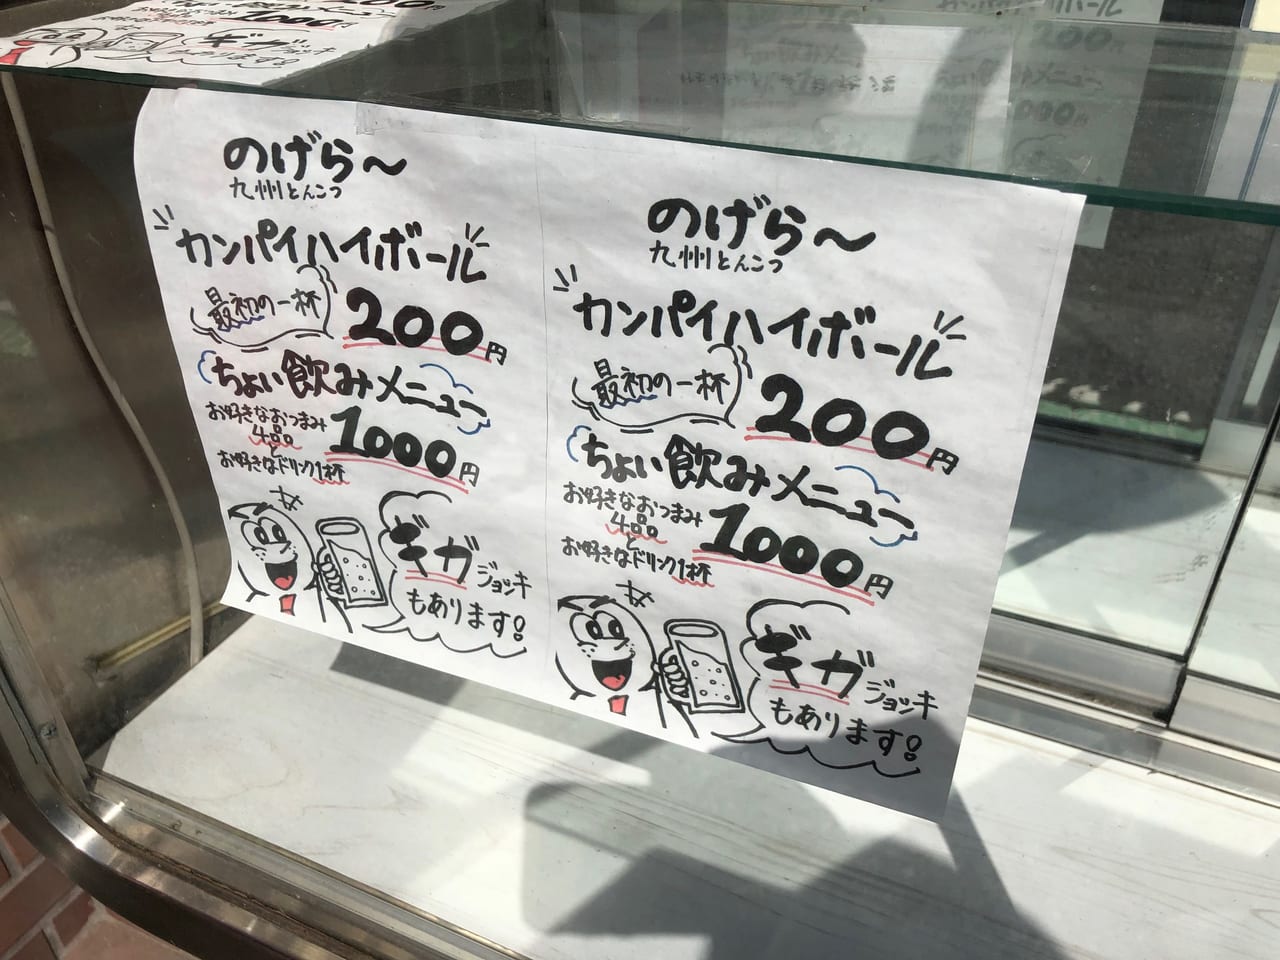 のげら〜
九州とんこつ
カンパイハイボール
最初の一杯
200円
ちょい飲みメニュー
お好きなおつまみ
4品
と
お好きなドリンク1杯
1000円
ギガジョッキ
もあります!
のげら〜
九州とんこつ
カンパイハイボール
最初の一杯
200円
ちょい飲みメニュー
お好きなおつまみ
4品
と
お好きなドリンク1杯
1000円
ギガジョッキ
もあります!